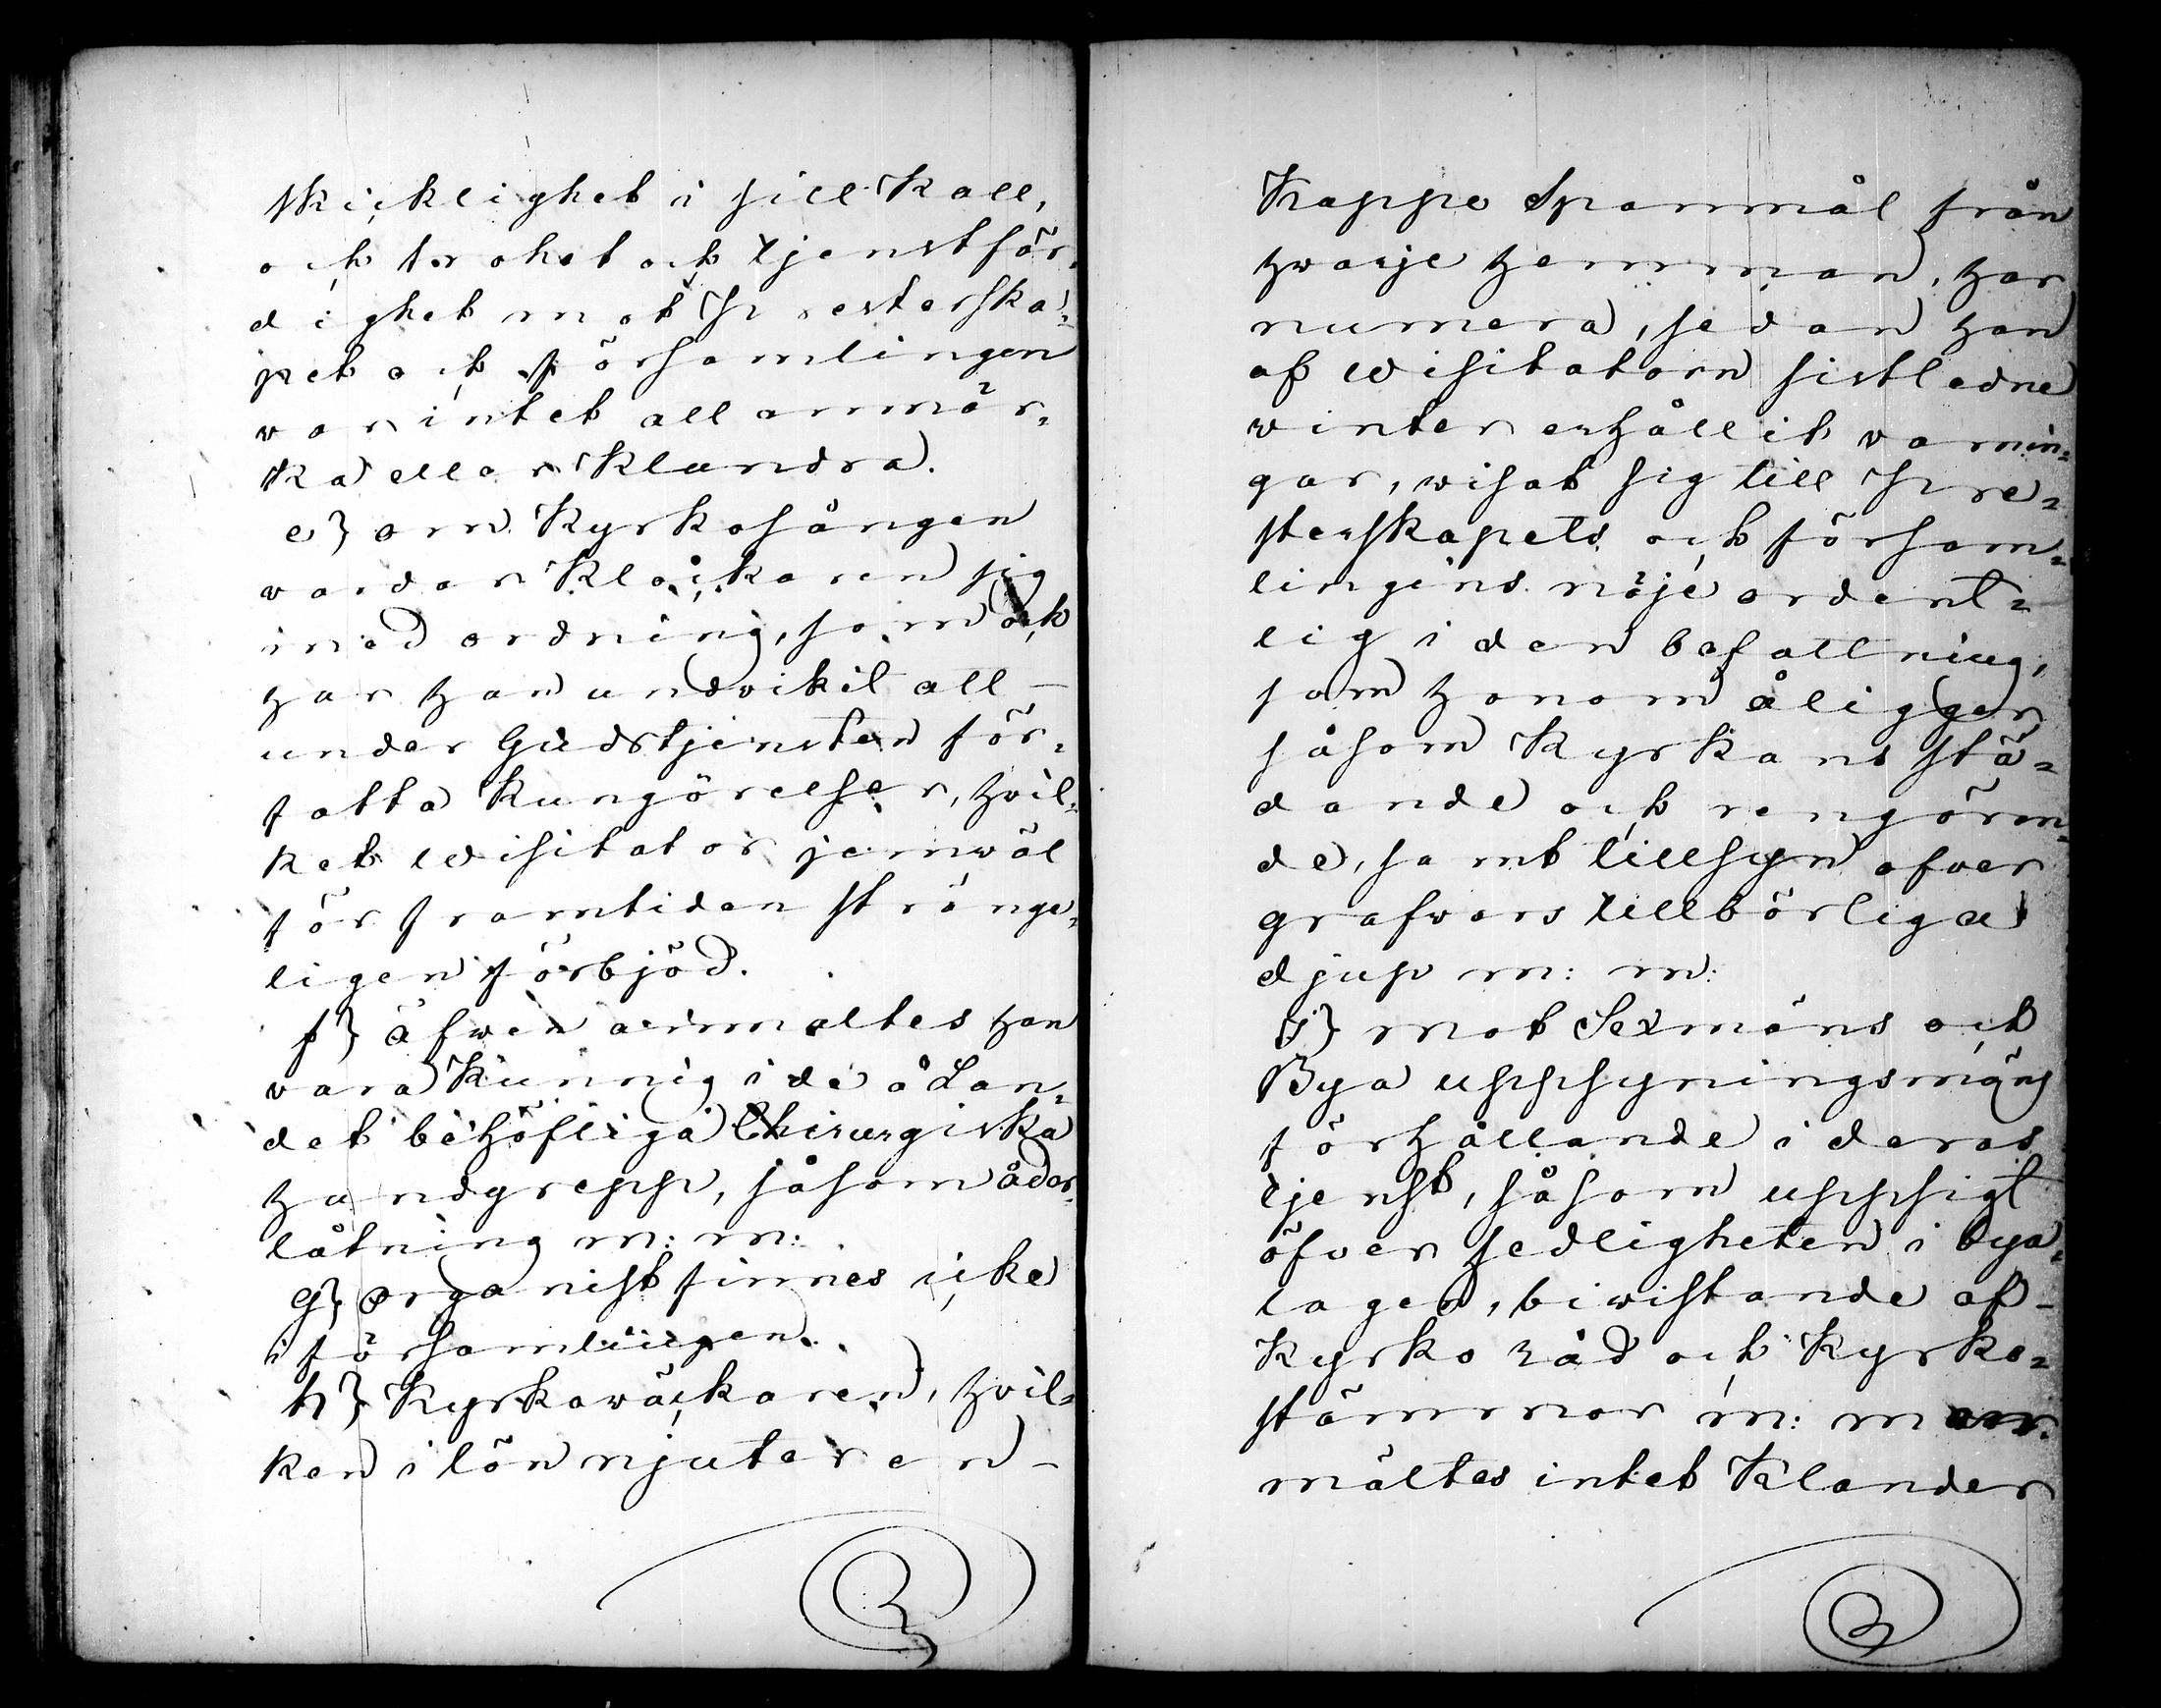 skicklighet i sitt Kall,
och trohet och tjenstfär,
dighet mot Presterska=
pet och församlingen
var intet att anmär,
ka eller Klandra.
e} om Kyrkosången
vardar Klåckaren sig
med ordning, som ock
har han undvikit att –
under Gudstjensten för,
fatta Kungörelser, hvil,
ket Wisitator jemwäl
för framtiden stränge,
ligen förbjöd.
f} äfwen anmältes han
vara Kunnig i de å Lan,
det behöfliga Chirurgiska
handgrepp, såsom åder,
låtning m: m:
g} organist finnes icke
i församlingen.
h} Kyrkoväckaren, hvil,
ken i lön njuter en –
Kappe Spanmål från
hwarje hemman, har
numera, sedan han
af Wisitatorn sistledne
winter erhållit varnin,
gar, wisat sig till Pre,
sterskapets och försam,
lingens nöje ordent,
lig i den befattning,
som honom åligger
såsom Kyrkans stä,
dande och rengöran,
de, samt tillsyn öfver
grafvars tillbörliga
djup m: m:
i} mot Sexmäns och
Bya uppsyningsmäns
förhållande i deras
tjenst, såsom uppsigt
öfver sedligheten i bya,
lagen, biwistande af –
Kyrko råd och Kyrko,
stämmor m: m an.
mältes intet Klander